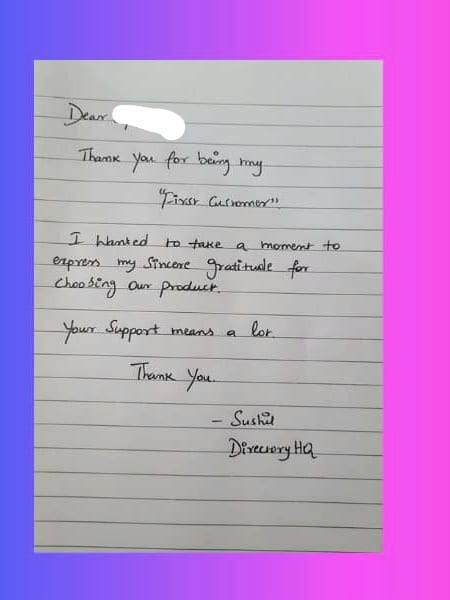 Dear
Thank you for being my
"First Customer".
I wanted to take a moment to
express my Sincere gratitude for
choosing our product.
Your Support means a lot.
Thank You.
- Sushil
DirectoryHQ